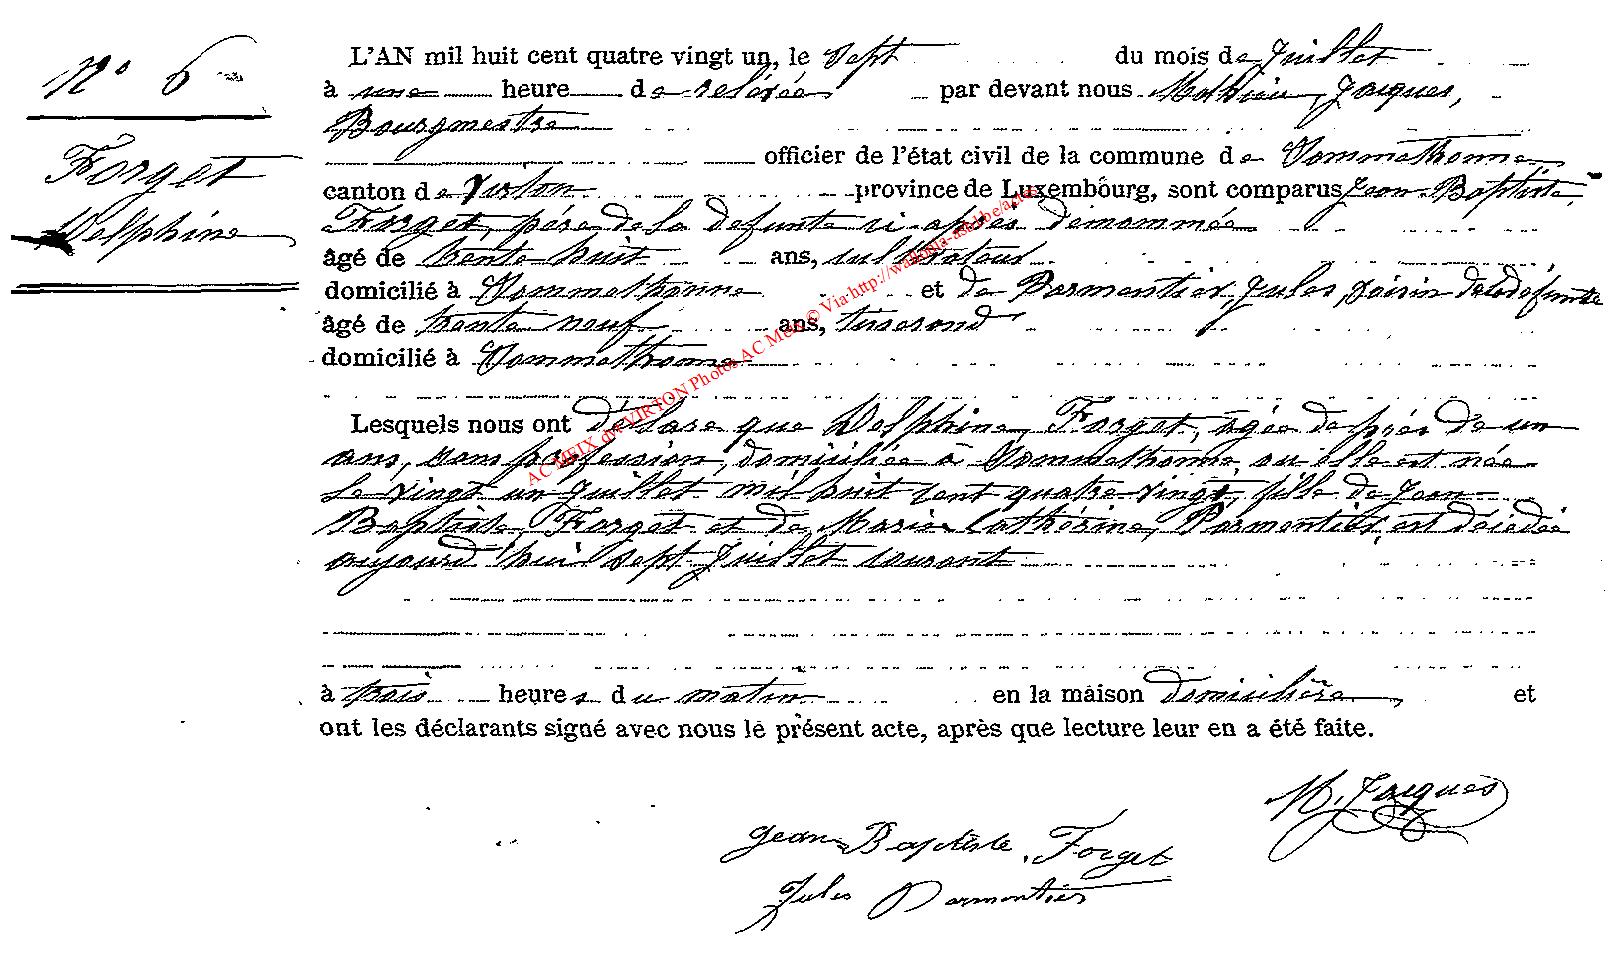 N° 6
Forget
Delphine
L'AN mil huit cent quatre vingt un, le sept du mois de Juillet
à une heure de relévée par devant nous Mathieu Jacques,
Bourgmestre
officier de l'état civil de la commune de Sommethonne
canton de Virton province de Luxembourg, sont comparus Jean Baptiste
Forget, pére de la defunte ci après dénommée
âgé de trente huit ans, cultivateur
domicilié à Sommethonne et de Parmentier Jules, voisin de la défunte
âgé de trente neuf ans, tisserand
domicilié à Sommethonne
Lesquels nous ont déclaré que Delphine Forget, agée de près de un
ans, sans profession, domiciliée à Sommethonne ou elle est née
le vingt un Juillet mil huit cent quatre vingt, fille de Jean
Baptiste Forget et de Marie Cathérine Parmentier, est décédée
aujourd'hui sept Juillet courant
à trois heures du matin en la maison domicilière et
ont les déclarants signé avec nous le présent acte, après que lecture leur en a été faite.
M. Jacques
Jean Baptiste Forget
Jules Parmentier
AC MEIX dvt VIRTON Photos AC Meix © Via http://wallonia-asbl.be/actes